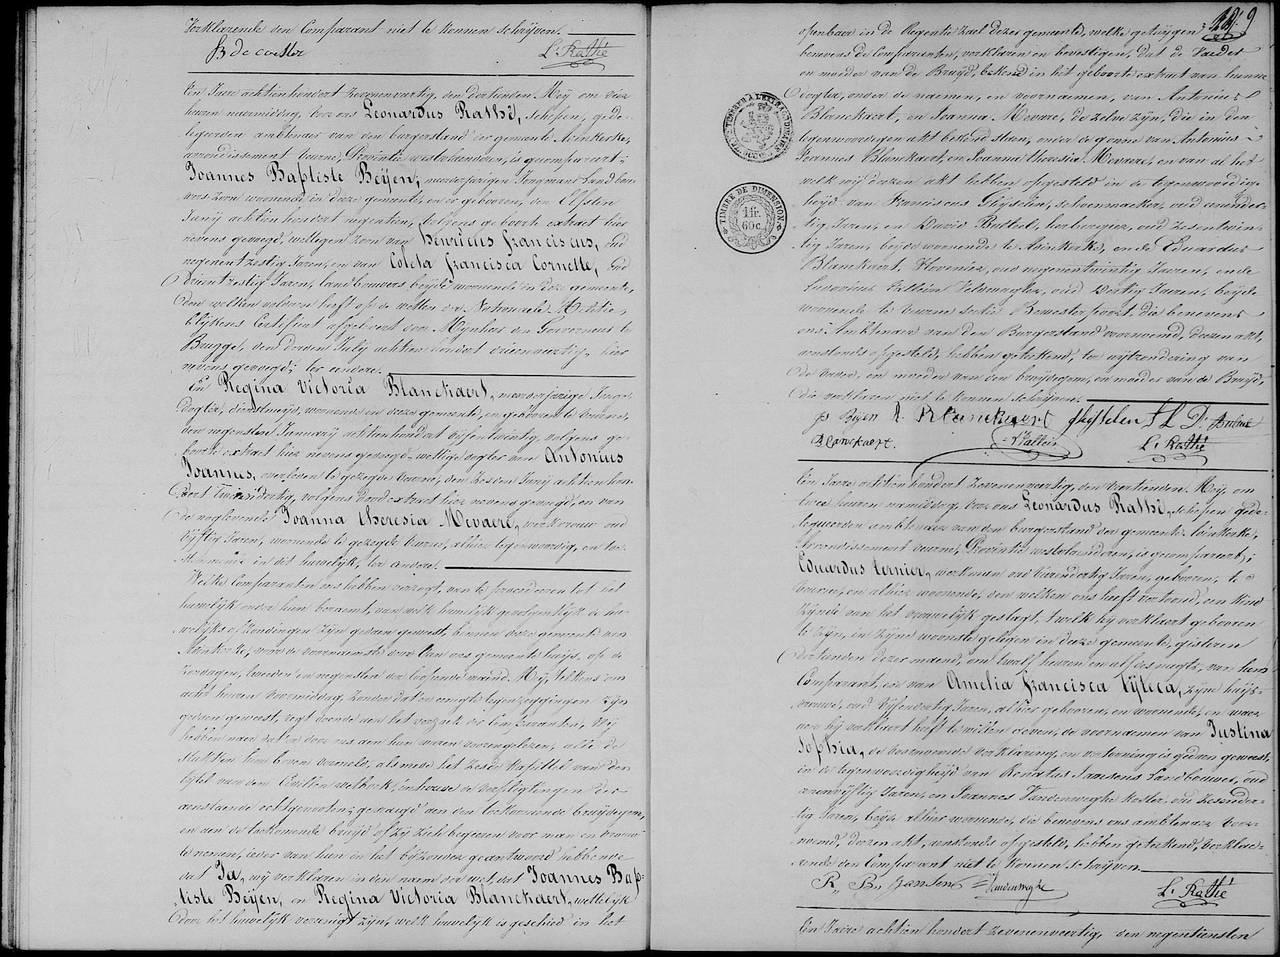 Verklarende den Comparant niet te konnen schrijven.
B de coster L. Rathé
En Jare achtienhondert zevenenveertig, den dertienden Meij om vier
huren naermiddag, voor ons Leonardus Rathé, schepen, gede-
legeerden ambtenaer van den burgerstand der gemeente Avinkerke,
arrondissement veurne, Provintie westvlaenderen, is gecompareert:
Joannes Baptiste Beijen, meerderjarigen Jongman Landbou-
wers zoon woonende in deze gemeente, en er geboren, den elfsten
Junij achtien hondert negentien, volgens geboorte extract hier
nevens gevoegd, wettigen zoon van Henricus franciscus, oud
negenentzestig Jaren, en van Coleta francisca Cornette, oud
Drientzestig Jaren, landbouwers beijde woonende in deze gemeente,
den welken voldaen heeft op de wetten der Nationaele Militie
blijkens Certificaet afgelevert door Mijnheer den Gouverneur te
Brugge, den derden Julij achtien hondert vierenveertig, hier
nevens gevoegd; ter eendere.
En Regina Victoria Blanckaert, meerderjarige Jonge
dogter, dienstmeijd, woonende in deze gemeente, en geboren te veurne,
den negensten Januarij achtienhondert vijfentwintig, volgens ge-
boorte extract hier nevens gevoegd, wettige dogter van Antonius
Joannes, overleden te gezegde Veurne, den zesden Junij achtien hon-
dert Tweeëndertig, volgens dood extract hier nevens gevoegd, en van
de naglevende Joanna theresia Mevaere, werkvrouw oud
vijftig Jaren, woonende te gezegde veurne, alhier tegenwoordig, en toe-
stemmende in dit huwelijk, ter andere.
Welke Comparanten ons hebben verzogt, van te procederen tot het
huwelijk onder hun beraemt, van welk huwelijk gevolgentlijk de hu-
welijks afkondingen zijn gedaen geweest, binnen deze gemeente van
Avinkerke, voor de voornaemste deur van ons gemeente huijs, op de
Zondagen, tweeden en negensten der loopende maend Meij, telkens om
acht huren voormiddag, zonder dat er eenige tegenzeggingen zijn
gedaen geweest, regt doende aen het verzoek der Comparanten, Wij
hebben naer dat er door ons aen hun waren voorengelezen, alle de
stukken hier boven vermeld, alsmede het zesde kapittel van den
tijtel van den Civilen wetboek, inhoudende de verpligtingen der
aenstaende echtgenoten, gevraegd aen den toekomende bruijdegom,
en aen de toekomende bruijd of zij zich begeeren voor man en vrouw
te nemen, ieder van hun in het bijzonder geantwoord hebbende
dat Ja, wij verklaren in den naem der wet, dat Joannes Bap-
tiste Beijen, en Regina Victoria Blanckaert, wettelijk
door het huwelijk vereenigt zijn, welk huwelijk is geschied in het
openbaer in de Regentie zael dezer gemeente, welke getuijgen
benevens de Comparanten, verklaren en bevestigen, dat de Vaeder
en moeder van de Bruijd, bekend in het geboorte extract van hunne
dogter, onder de naemen, en voornaemen, van Antonius
Blanckaert, en Joanna Mevare, de zelve zijn, die in den
tegenwoordegen akt bekend staen, onder de gonne van Antonius
Joannes Blanckaert, en Joanna theresia Mevaere, en van al het
welk wij dezen akt hebben opgesteld in de tegenwoordig-
heijd van Franciscus Ghijselen, schoenmaeker, oud
tig Jaren, en David Bultel, herbergier, oud zesentwin-
tig Jaren, beijde woonende te Avinkerke, en de Eduardus
Blanckaert, Hovenier, oud negenentwintig Jaren, ende
Ludovicus oud veertig Jaren, beijde
woonende te veurne sectie Bewesterpoort, die benevens
ons Ambtenaer van den Burgerstand voornoemd, dezen akt,
aenstonds opgesteld, hebben geteekend, ter uijtzondering van
de vader, en moeder van den bruijdegom, en moeder van de Bruijd,
die verklaren niet te konnen schrijven.
Beijen R. Blanckaert Gheijselen D. Bultel
Blanckaert. L. Rathé
En Jare achtien hondert zevenenveertig, den veertienden Meij, om
twee huren namiddag, voor ons Leonardus Rathé, schepen gede-
legeerden ambtenaer van den burgerstand der gemeente Avinkerke,
arrondissement veurne, Provintie westvlaenderen, is gecompareert;
Eduardus ternier, werkman oud vierendertig Jaren, geboren, te
Veurne, en alhier woonende, den welken ons heeft vertoond, een kind
zijnde van het vrouwelijk geslagt, 't welk hij verklaert geboren
te zijn, in zijne woonste gelegen in deze gemeente, gisteren
dertienden dezer maend, om twaelf huren en alf des nagts, van hem
Comparant, en van Amelia francisca Tijteca, zijne huijs-
vrouwe, oud vijfendertig Jaren, alhier geboren, en woonende, en waer
aen hij verklaert heeft te willen geven, de voornamen van Justina
Sophia, de voornoemde verklaring, en vertooning is gedaen geweest,
in de tegenwoordigheijd van Renatus Janssens Landbouwer, oud
zevenvijftig Jaren, en Joannes Vandenweghe koster, oud zesender-
tig Jaren, beijde alhier woonende, die benevens ons ambtenaer voor-
noemd, dezen akt, aenstonds opgesteld, hebben geteekend, verklae-
rende den Comparant niet te konnen schrijven.
R. B. Jansens Vandenweghe L. Rathé
En Jare achtien hondert zevenenveertig, den negentiensten
TIMBRE A L'EXTRAORDINAIRE
TIMBRE DE DIMENSION
1 fr.
60 c.